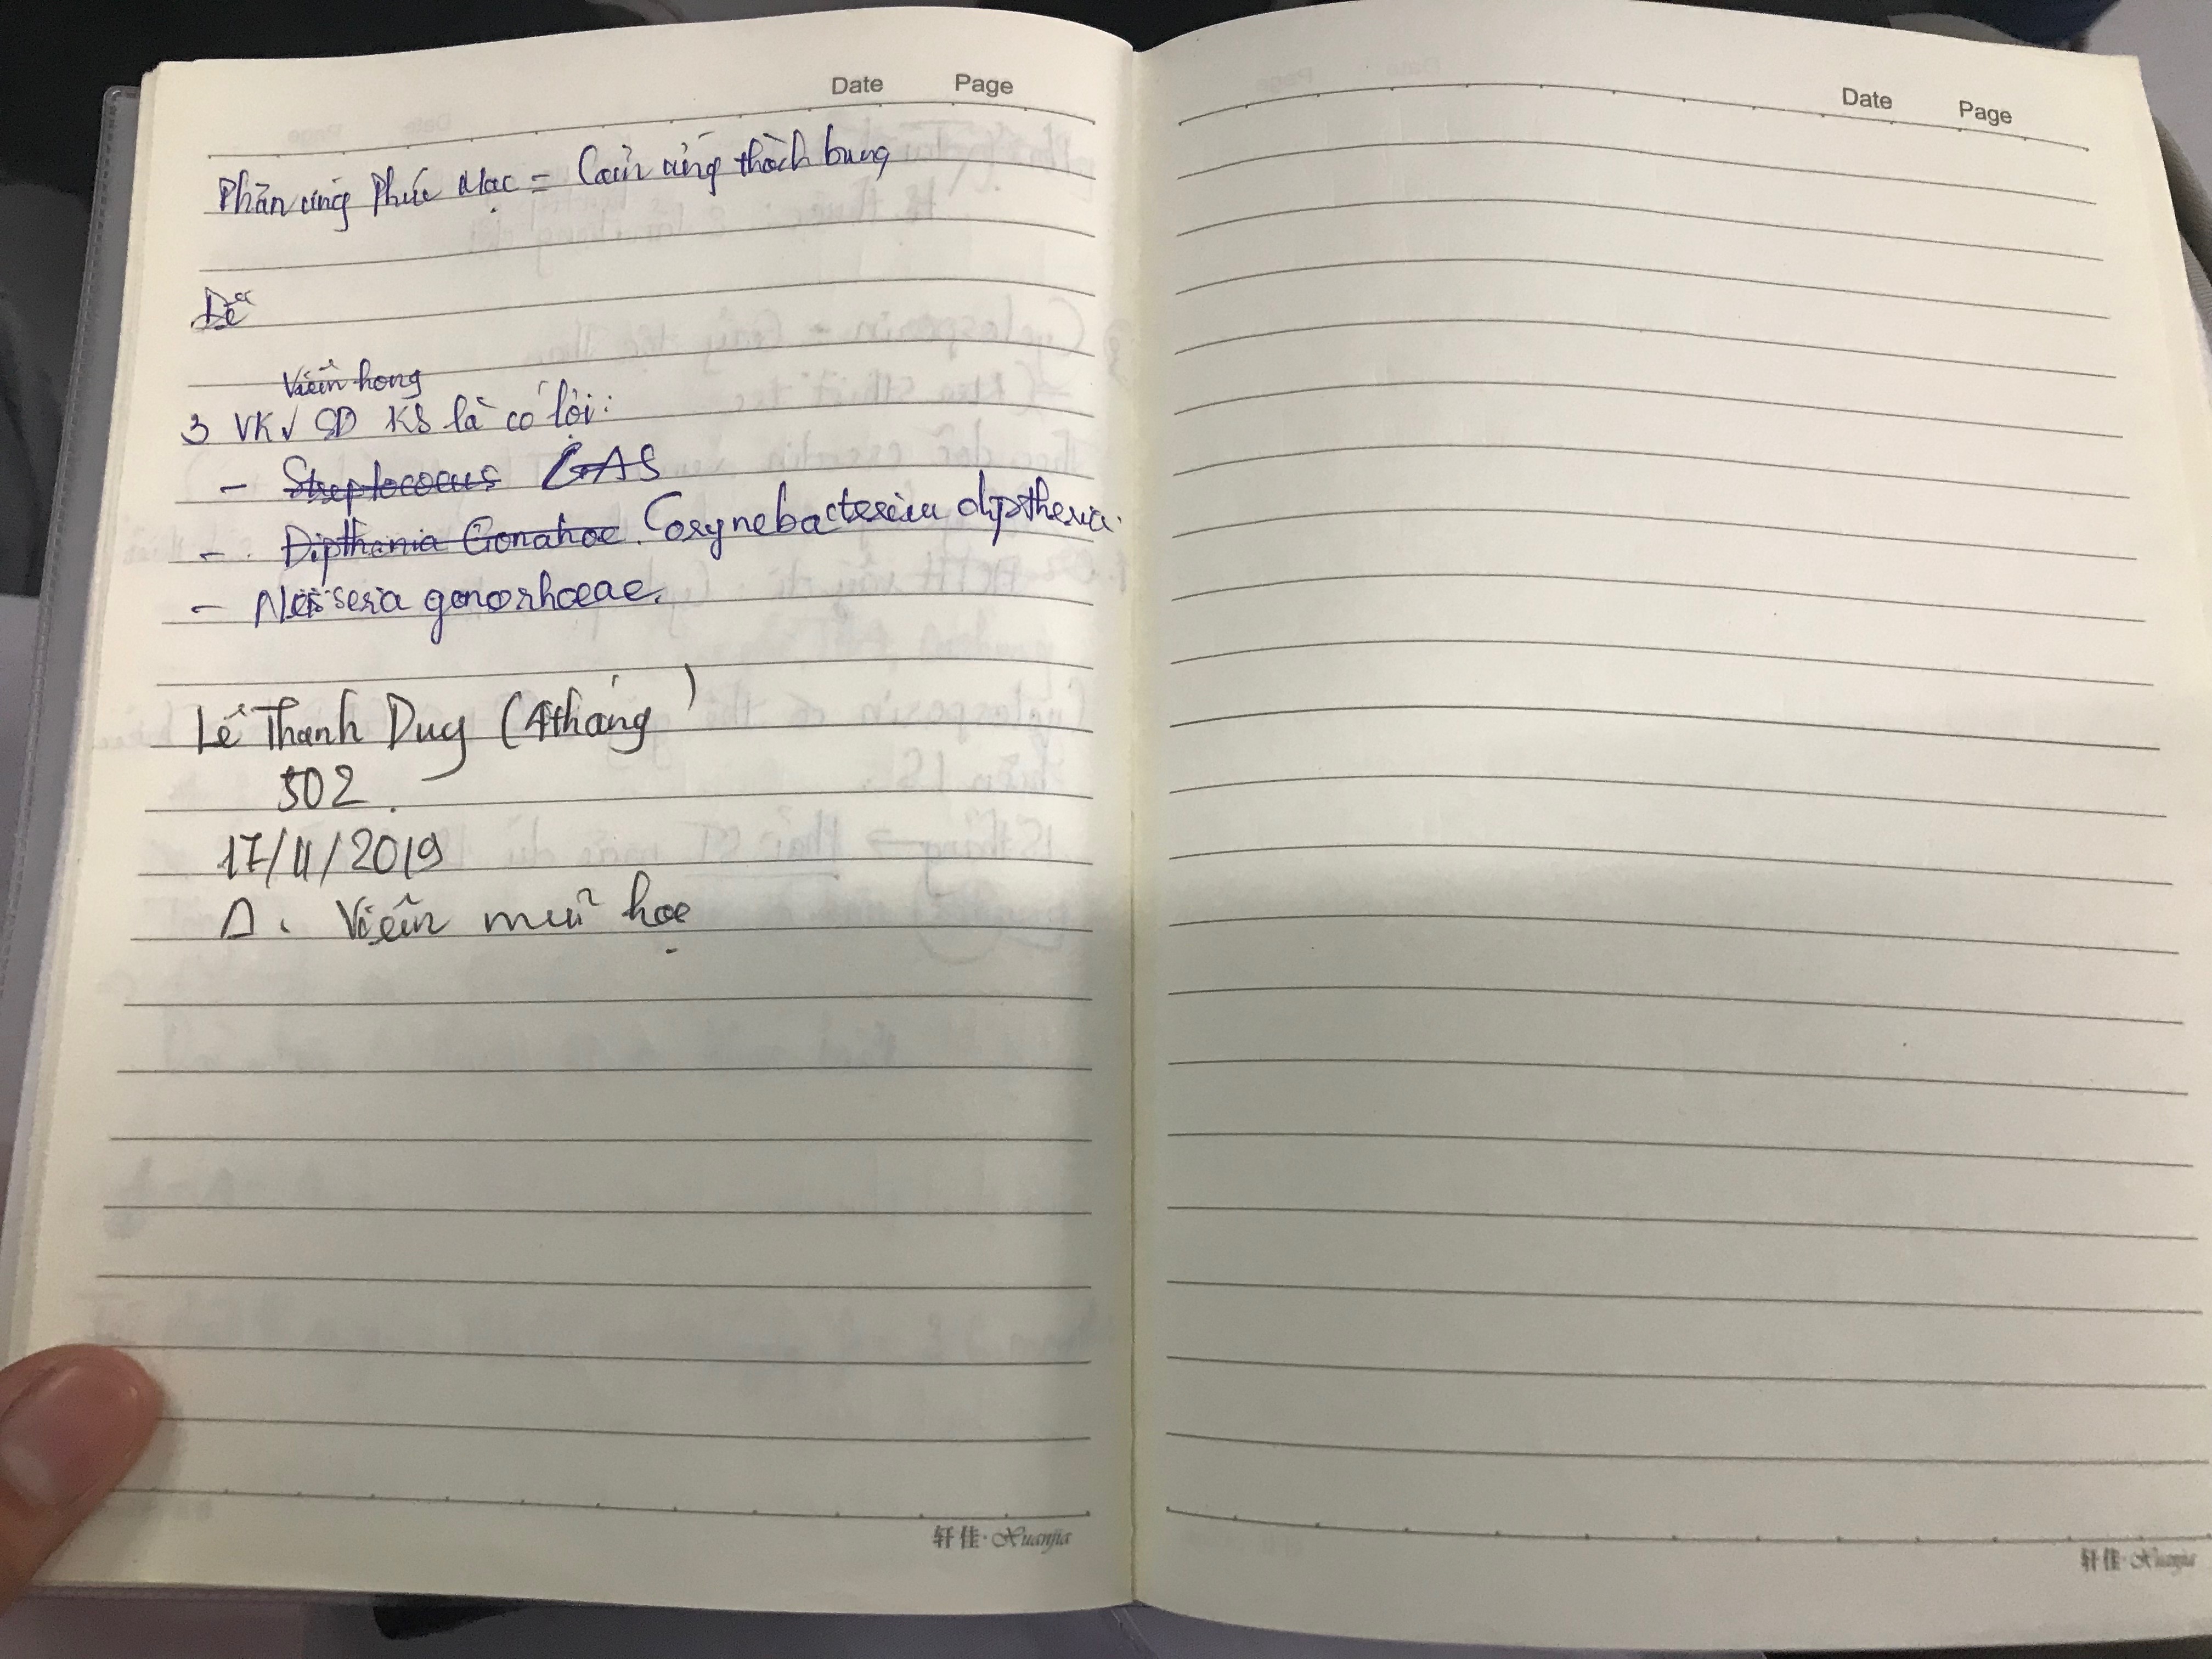 Date Page
Phản ứng Phúc Mạc = Cảm ứng thành bụng
Dễ
Viêm họng
3 VK √ SD KS là có lợi:
- Streptococus GAS
- Dipthenia Gonahoe Corynebacteriu diptheria.
- Neisseria gonorhoeae.
Lê Thanh Duy (4tháng)
502.
17/11/2019
Δ. Viêm mũi họ
轩佳·Xuanjia
Date Page
轩佳·Xuanjia